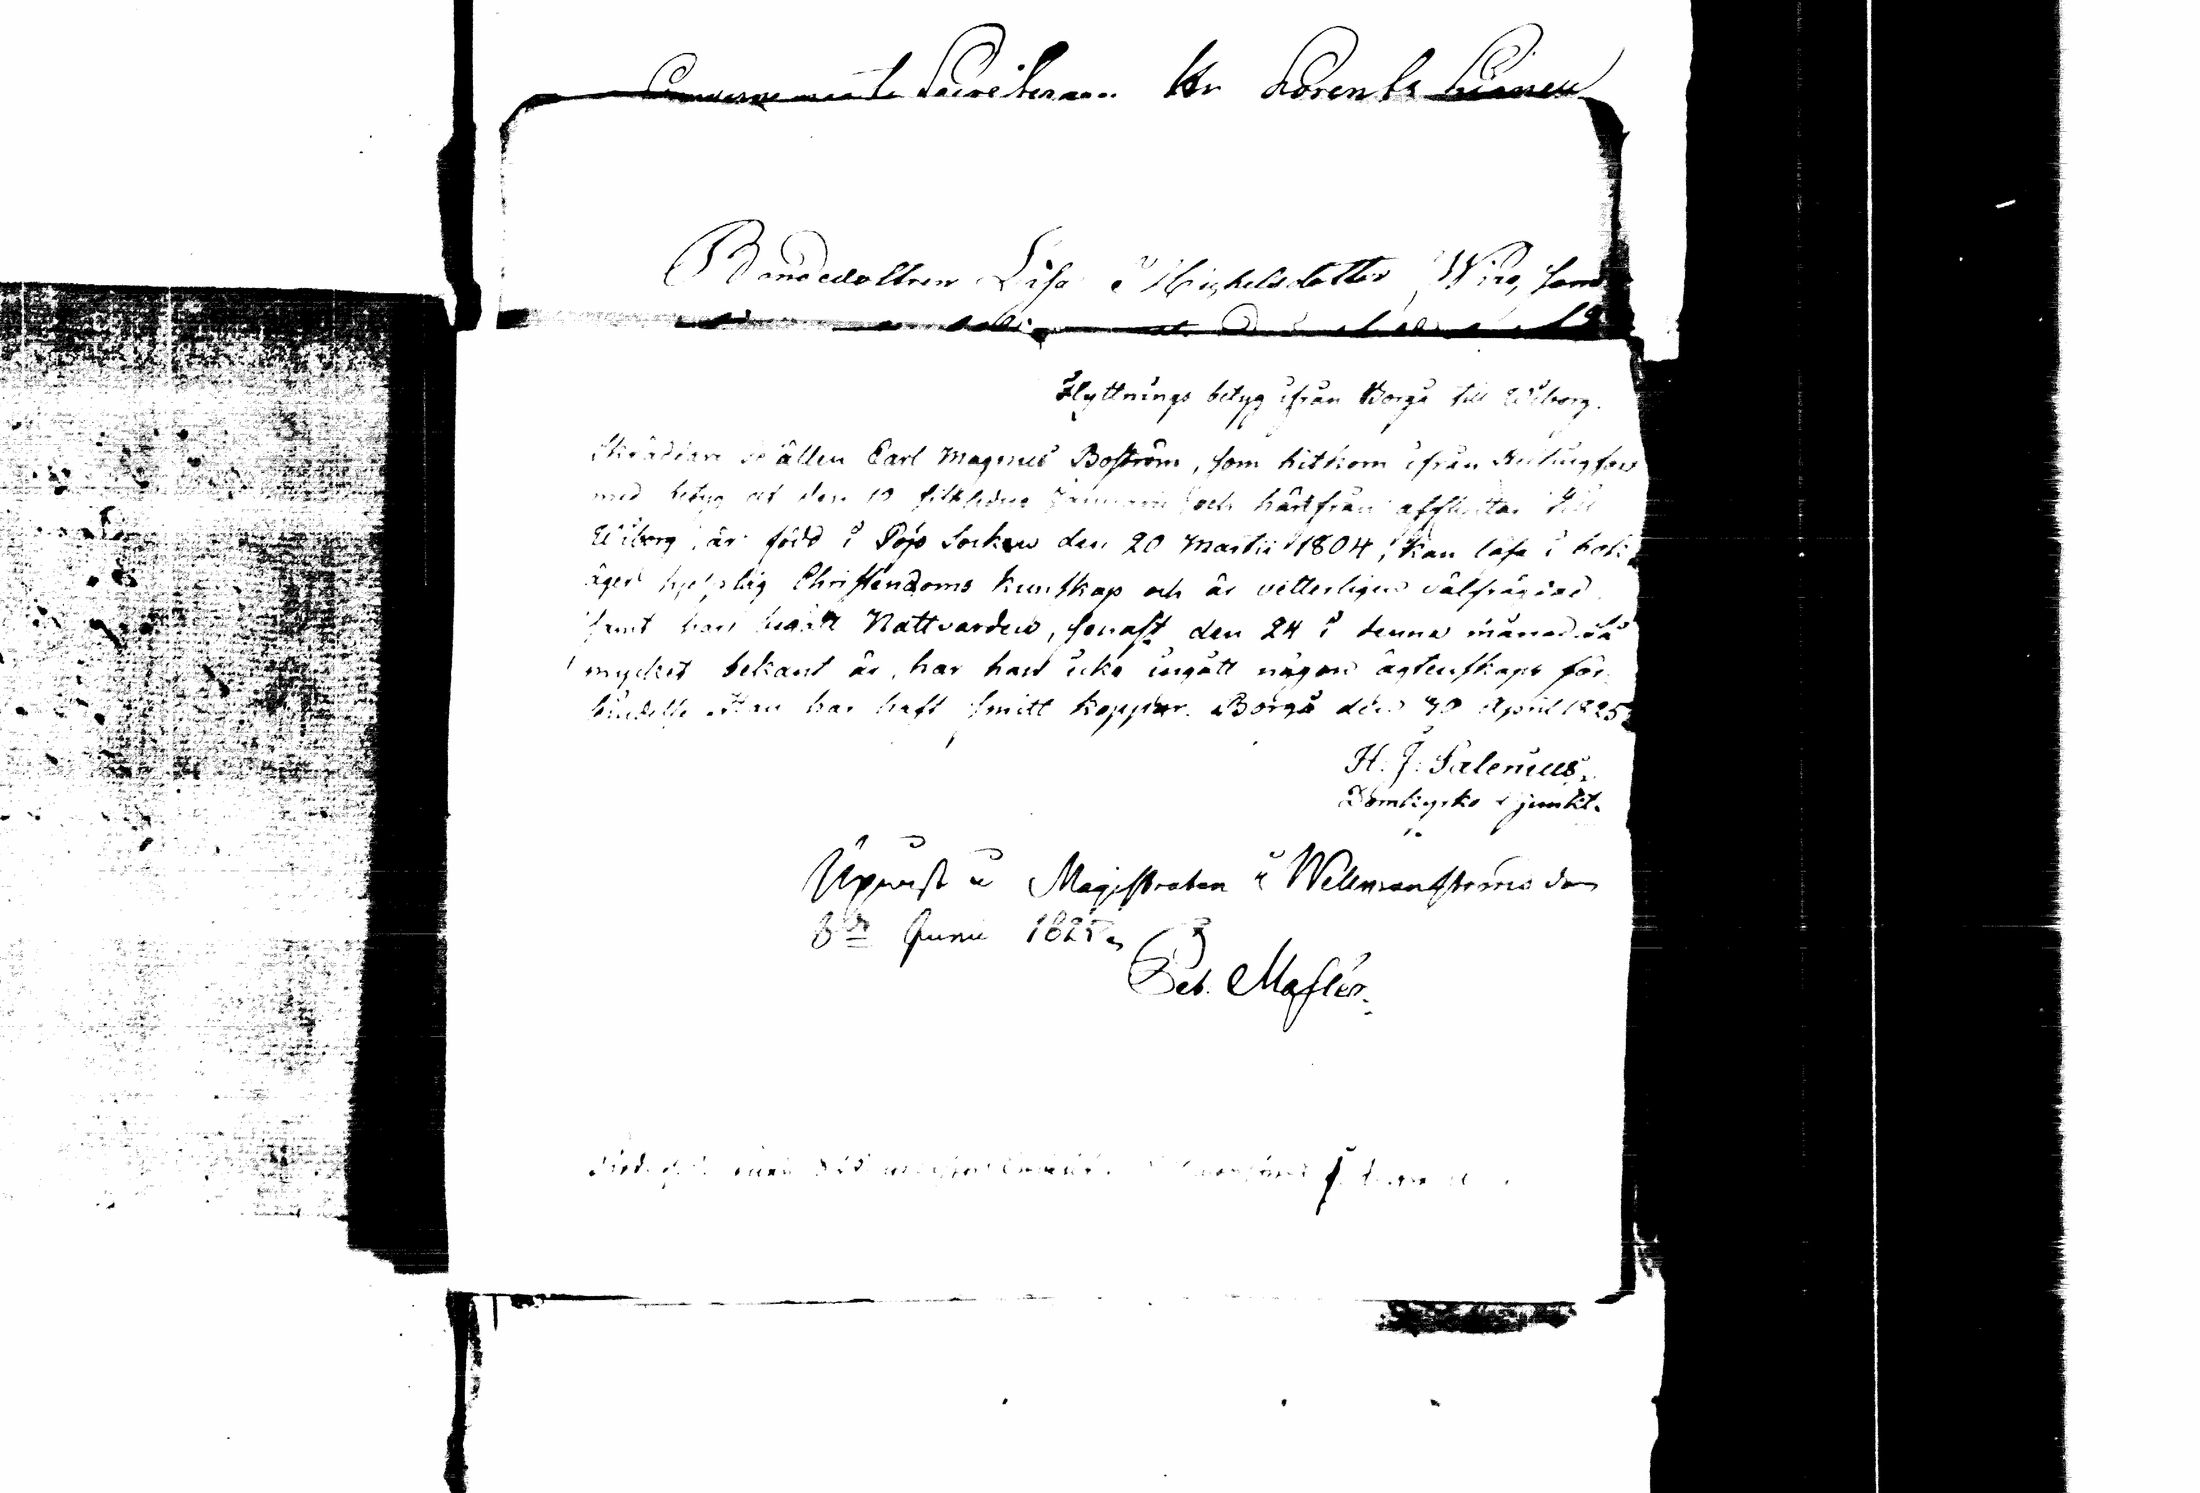 Secreteraren Hr Lorents
Bondedottren Lisa Michelsdotter Wiro, som
Flyttnings betyg ifrån Borgå till Wiborg.
Skräddare gesällen Carl Magnus Boström, som hitkom ifrån Helsingfors
med betyg af den 10 sistledne Januarii och härifrån afflyttar till
Wiborg, är född i Pojo Socken den 20 Martii 1804, kan läsa i bok
äger hjelplig Christendoms kunskap och är vitterligen välfrägdad
samt har begått Nattvarden, senast den 24 i denna månad. Så
mycket bekant är, har han icke ingått någon ägtenskaps för
bindelse. Han har haft smitt koppor. Borgå den 30 April 1825
H. J. Salenius,
Domkyrko Adjunkt.
Uppvist i Magistraten i Wilmanstrand den
8de Junii 1825,
Seb. Masler.